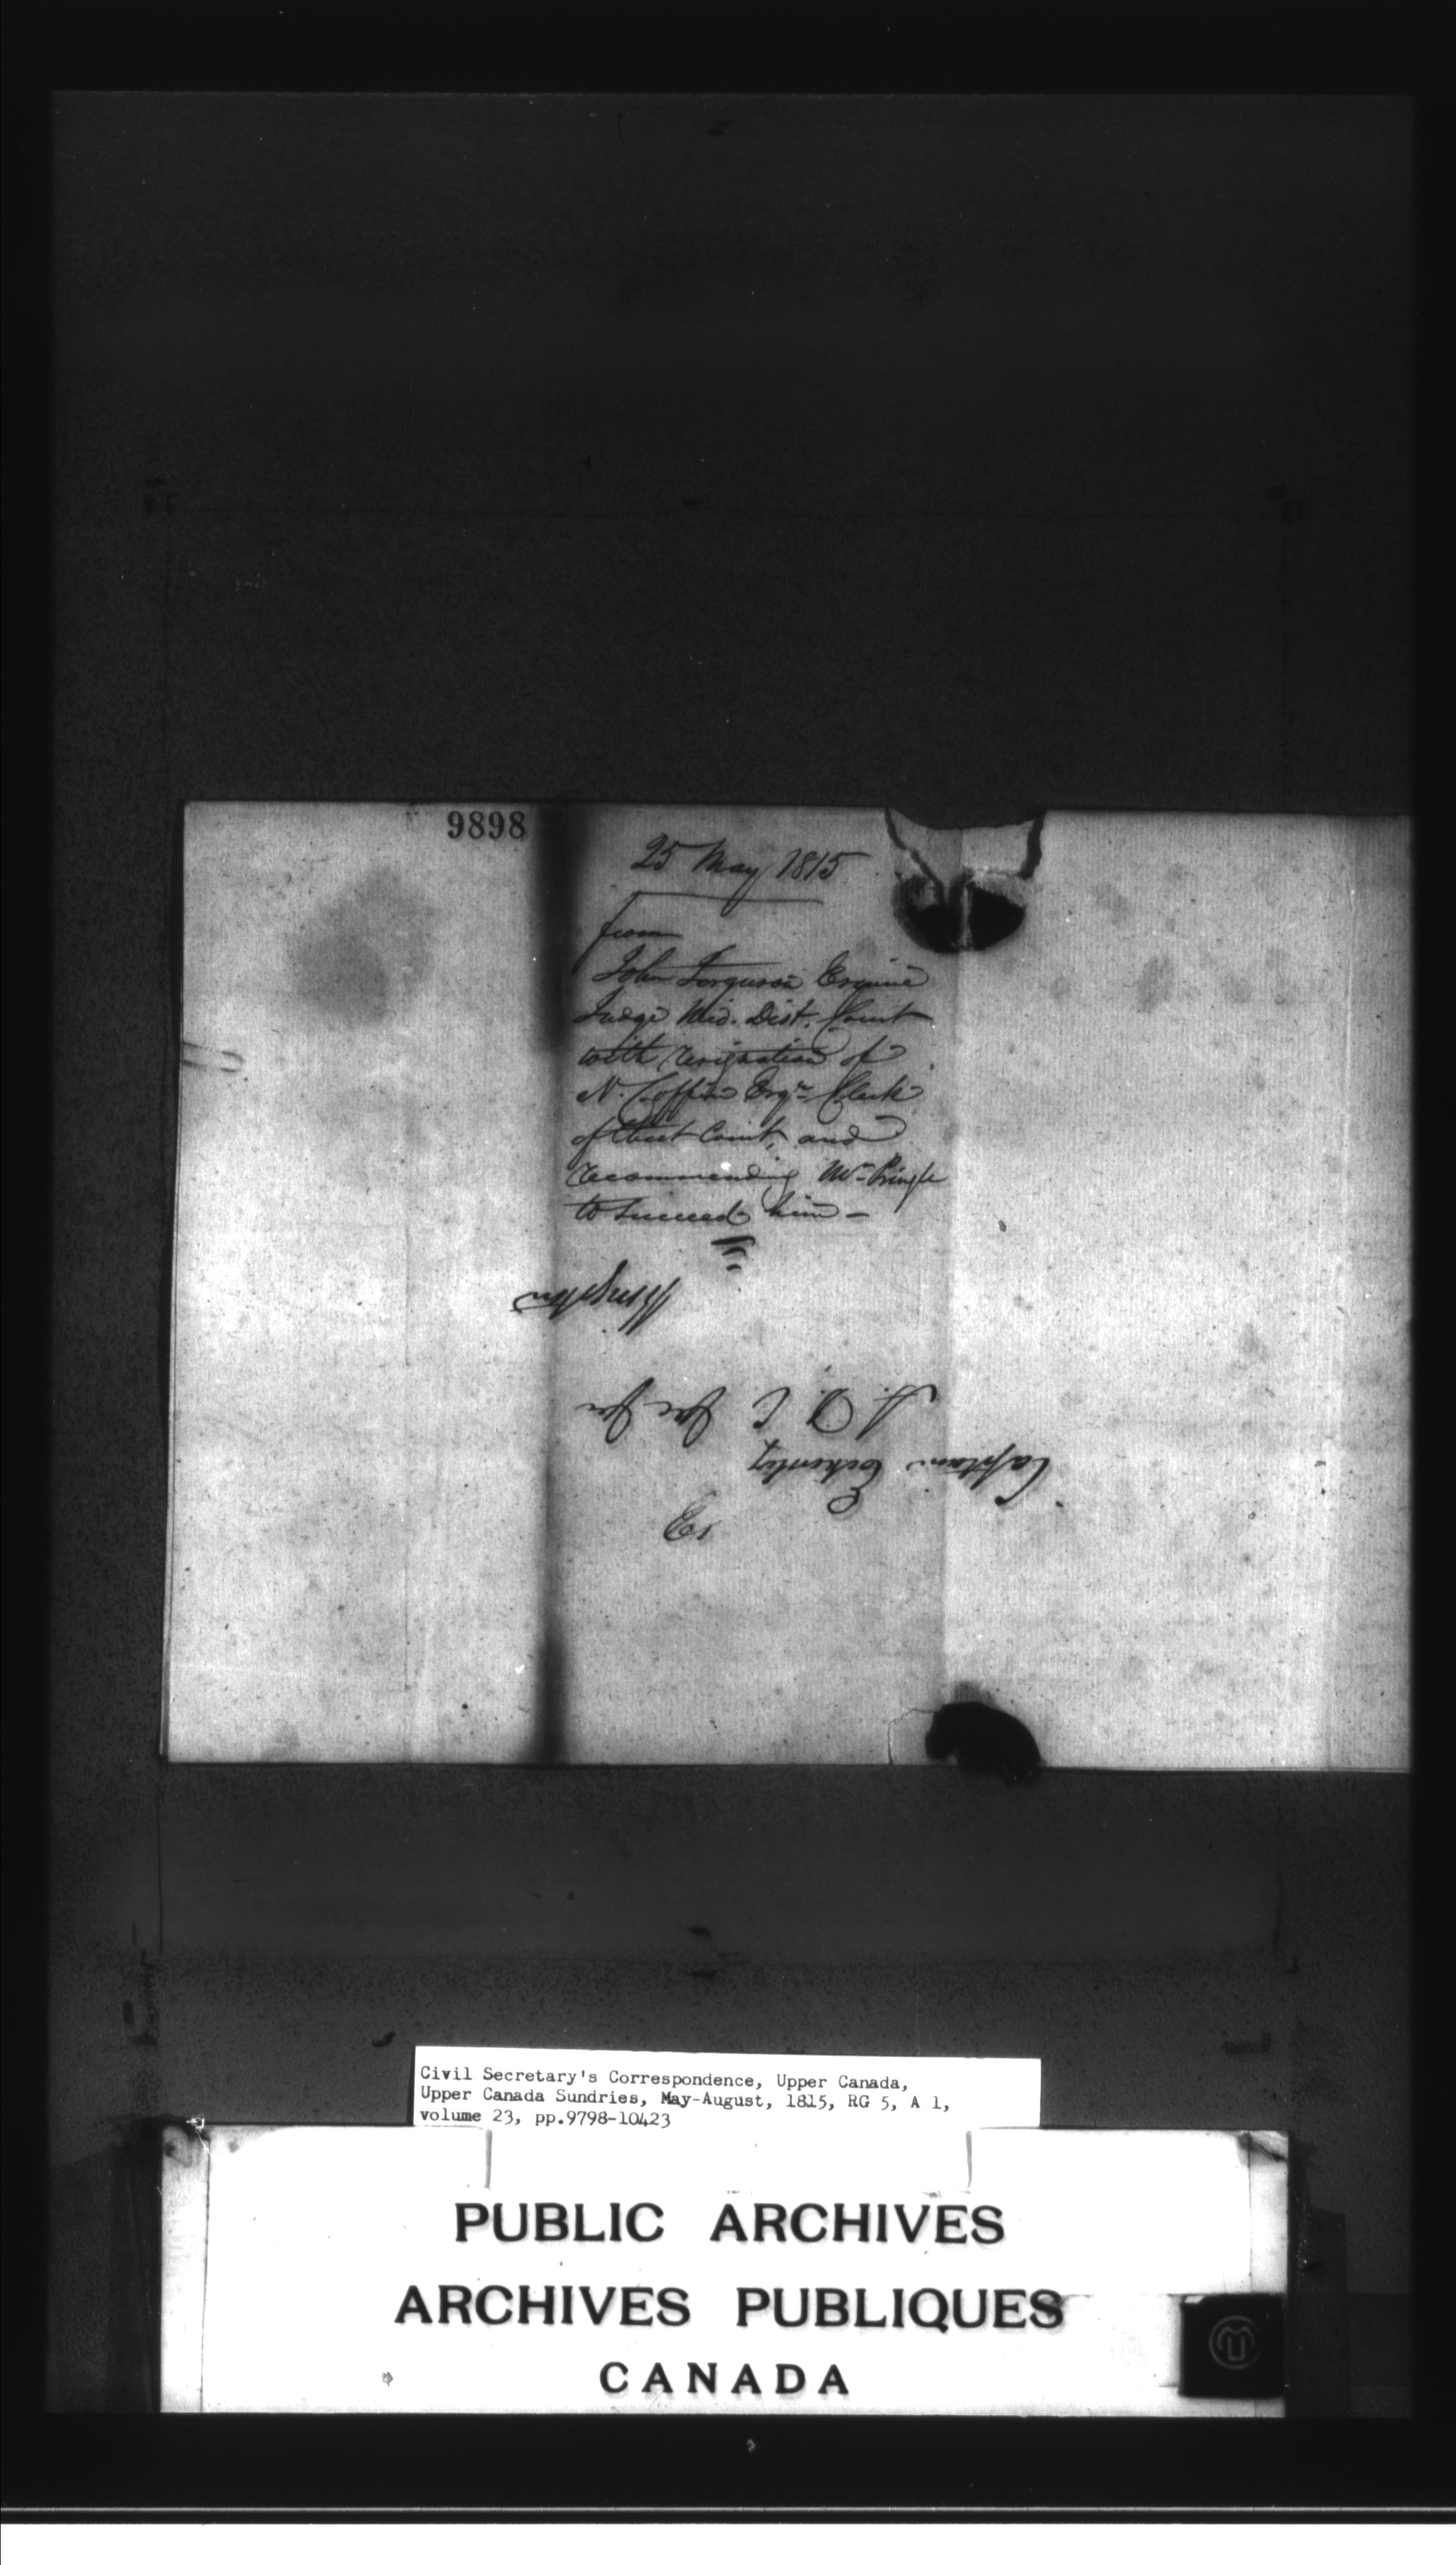 9898
25 May 1815
from
John Ferguson Esquire
Judge Mid. Dist. Court
with resignation of
N. Coffin Esqre Clerk
of that Court, and
recommending Mr Pringle
to succeed him –
Captain
A. D. C &c &c
Kingston
Civil Secretary's Correspondence, Upper Canada,
Upper Canada Sundries, May-August, 1815, RG 5, A 1,
volume 23, pp.9798-10423
PUBLIC ARCHIVES
ARCHIVES PUBLIQUES
CANADA